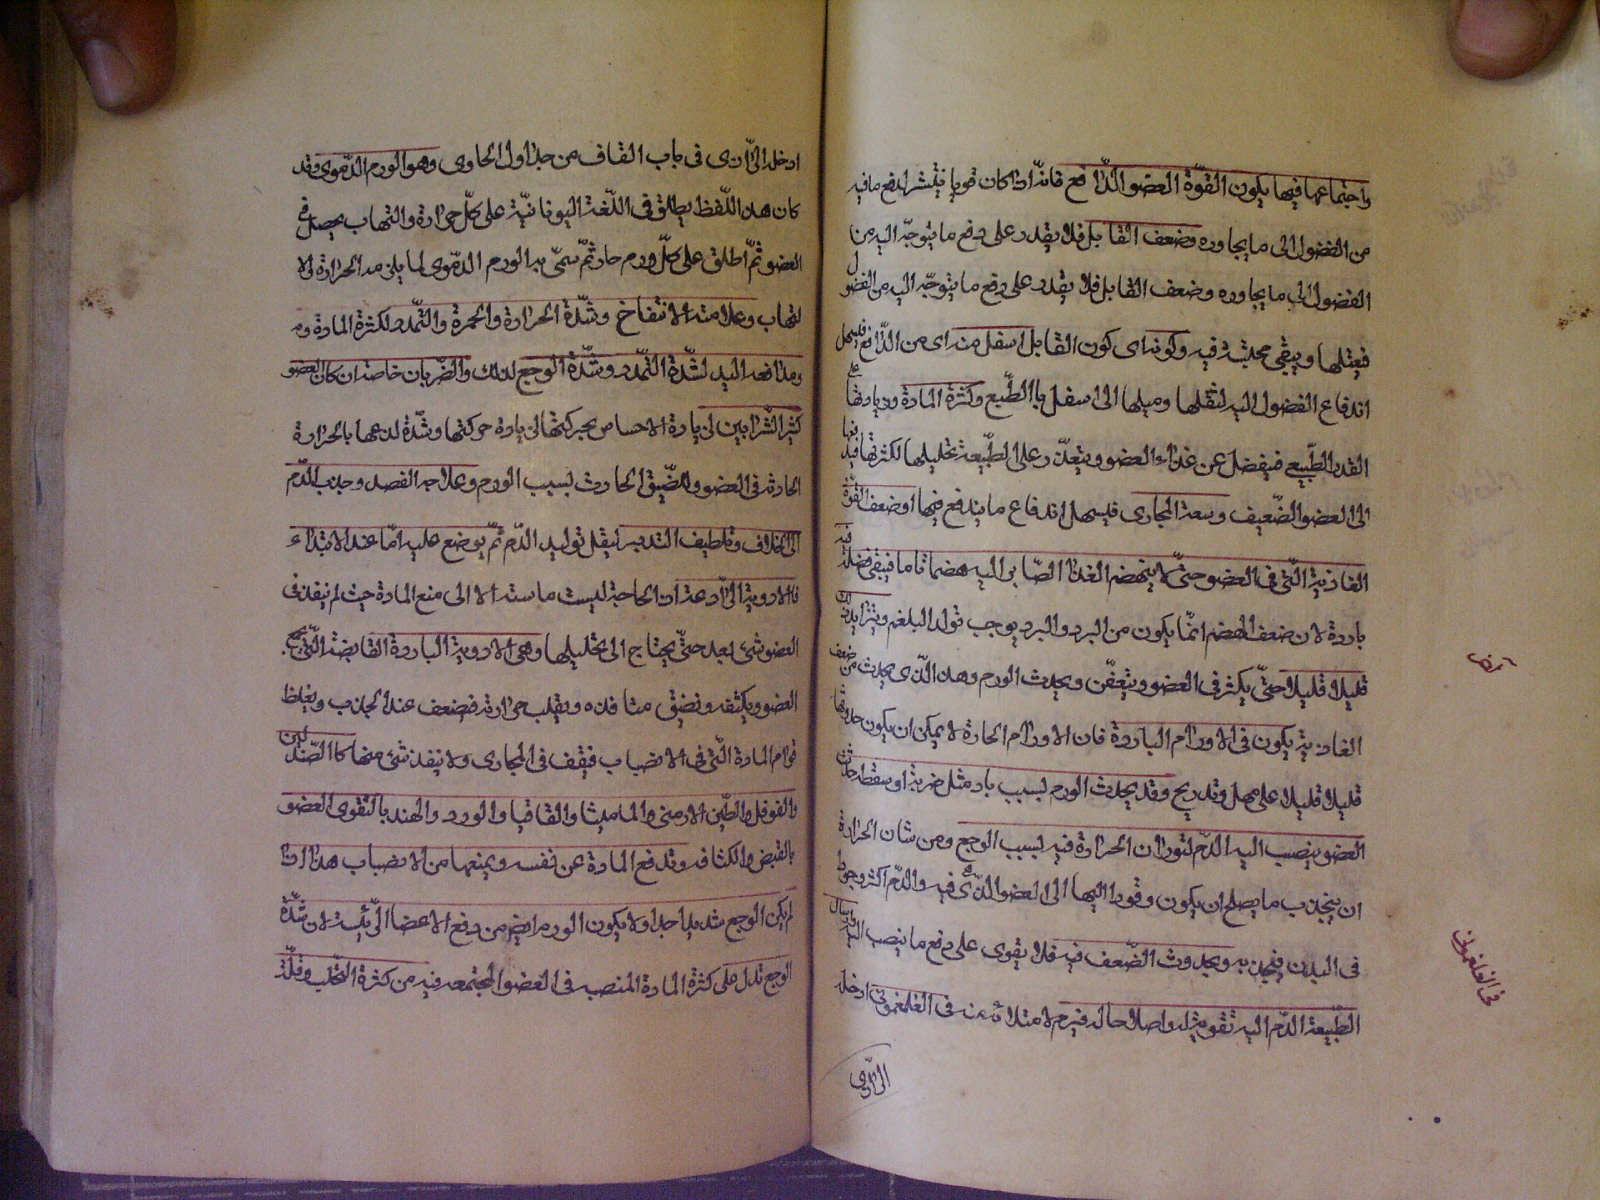 واجتماعها فيها يكون القوّة العضو الدّافع فانّه اذا كان قويا يتيسّر له دفع ما فيه
من الفضول الى ما يجاوره وضعف القابل فلا يقدر على دفع ما يتوجّه اليه من
الفضول الى ما يجاوره وضعف القابل فلا يقدر على دفع ما يتوجّه اليه من الفضول
فيقبلها ويبقى محتبسة فيه وكونه اى كون القابل اسفل منه اى من الدّافع فيسهل
اندفاع الفضول اليه لثقلها وميلها الى اسفل بالطّبع وكثرة المادة وزيادتها على
القدر الطّبيعى فيفضل عن غذاء العضو ويتعذّر على الطّبيعة تحليلها لكثرتها
الى العضو الضّعيف وسعة المجارى فيسهل اندفاع ما يندفع فيها او ضعف القوّة
الغاذية الّتى فى العضو حتّى لا ينهضم الغذا الصّاير اليه هضما تاما فيبقى فضلة فيه
باردة لان ضعف الهضم انّما يكون من البرد والبرد يوجب تولد البلغم ويتزايد ذلك
قليلا قليلا حتّى يكثر فى العضو ويتعفّن ويحدث الورم وهذا الّذى يحدث من ضعف
الغاذية يكون فى الاورام الباردة فان الاورام الحارة لا يمكن ان يكون حدوثها
قليلا قليلا على مهل وتدريج وقد يحدث الورم لسبب باد مثل ضربة او سقطة
العضو ينصب اليه الدّم لثوران الحرارة فيه لسبب الوجع ومن شان الحرارة
ان ينجذب ما يصلح ان يكون وقودا اليها الى العضو الّذى فيه والدّم اكثر وجودا
فى البدن فينجذب ويحدوث الضّعف فيه فلا يقوى على دفع ما ينصب اليه وارسال
الطّبيعة الدّم اليه تقوية له واصلاح حاله فيرم لامتلائه منه فى الفلغمونى ادخله
الرّازى
ايضا
فى الفلغمونى
ادخله الرّازى فى باب القاف من جداول الحاوى وهو الورم الدّموى وقد
كان هذا اللّفظ يطلق فى اللّغة اليونانيّة على كلّ حرارة والتهاب يحصل فى
العضو ثمّ اطلق على كلّ ورم حار ثمّ سمّى به الورم الدّموى لما يلزمه الحرارة والا
لتهاب وعلامته الانتفاخ وشدّة الحرارة والحمرة والتّمدد لكثرة المادة وم
ومدافعة اليد لشدّة التّمدد وشدّة الوجع لذلك والضّربان خاصة ان كان العضو
كثير الشّرايين لزيادة الاحساس بحركتها لزيادة حركتها وشدّة لذعها بالحرارة
الحادثة فى العضو والضّيق الحادث لسبب الورم وعلاجه الفصد وجذب الدّم
الى الخلاف وتلطيف التدبير ليقل توليد الدّم ثمّ يوضع عليه امّا عند الابتداء
فالادوية الرّادعة اذ الحاجة ليست ماسة الا الى منع المادة حيث لم ينفذ فى
العضو شئ بعد حتّى يحتاج الى تحليلها وهى الادوية الباردة القابضة الّتى تجمع
العضو ويكثّفه ويضيّق منافذه ويقلب حرارته فيضعف عند الجذب ويغلظ
قوام المادة الّتى فى الانصباب فيقف فى المجارى ولا ينفذ شئ منها كالصّندلين
والفوفل والطّين الارمنى والماميثا والقاقيا والورد والهندبا لتقوى العضو
بالقبض والكثافة وتدفع المادة عن نفسه ويمنعها من الانصباب هذا اذا
لم يكن الوجع شديدا جدا ولا يكون الورم ايضا من دفع الاعضا الرّئيسة لان شدّة
الوجع تدل على كثرة المادة المنصبة فى العضو المجتمعة فيه من كثرة التحلب وقلّة